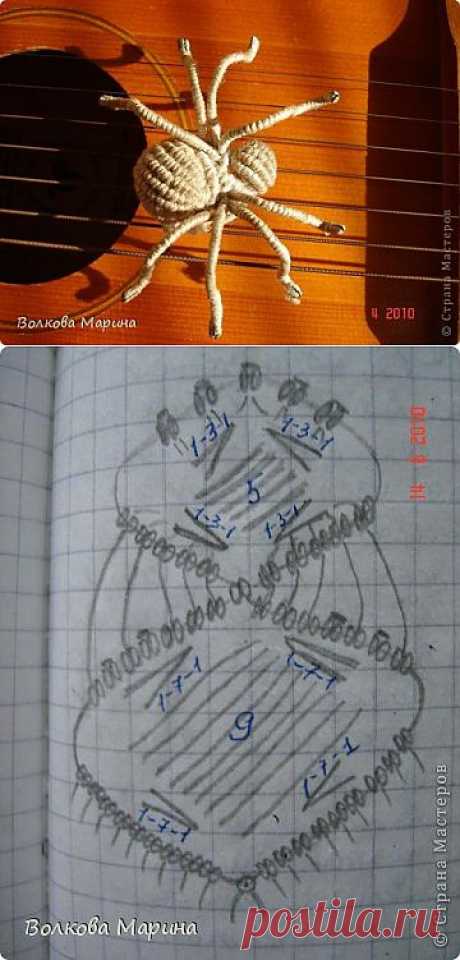 Волкова Марина
4 2010
© Страна Мастеров
1-3-1
1-3-1
5
1-3-1
1-3-1
1-7-1
1-7-1
9
1-7-1
1-7-1
14 6 2010
© Страна Мастеров
Волкова Марина
postila.ru